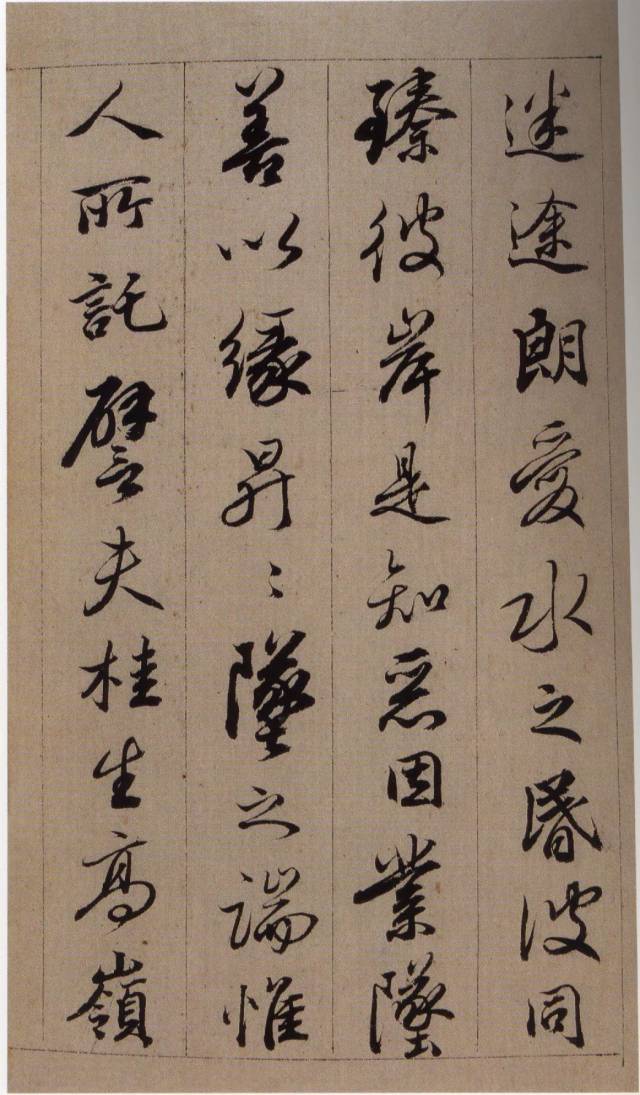 迷途朗愛水之昬波同
臻彼岸是知惡因業墜
善以緣昇〻墜之端惟
人所託譬夫桂生高嶺